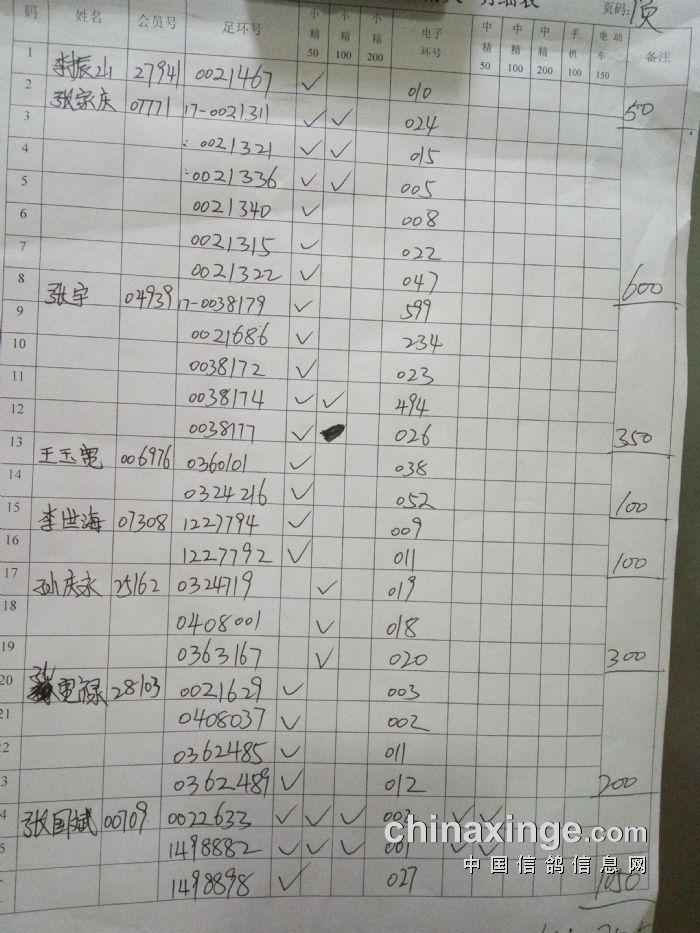 页码: 1页
码 姓名 会员号 足环号 小精50 小精100 小精200 电子环号 中精50 中精100 中精200 手机100 电动车150 备注
1 李振山 27941 0021467 ✓ 010 50
2 张家庆 07771 17-0021311 ✓ ✓ 024
3 : 0021321 ✓ ✓ 015
4 : 0021336 ✓ ✓ 005
5 0021340 ✓ 008
6 0021315 ✓ 022
7 0021322 ✓ 047 600
8 张宇 04939 17-0038179 ✓ 599
9 0021686 ✓ 234
10 0038172 ✓ 023
11 0038174 ✓ ✓ 494
12 0038177 ✓ 026 350
13 王玉宽 006976 0360101 ✓ 038
14 0324216 ✓ 052 100
15 李世海 07308 1227794 ✓ 009
16 1227792 ✓ 011 100
17 孙庆永 25162 0324719 ✓ 019
18 0408001 ✓ 018
19 0363167 ✓ 020 300
20 28103 0021629 ✓ 003
21 0408037 ✓ 002
2 0362485 ✓ 011
3 0362489 ✓ 012 200
4 张国斌 00709 0022633 ✓ ✓ ✓ 003 ✓ ✓
5 1498882 ✓ ✓ ✓ 001 ✓ ✓
1498898 ✓ 027 1050
chinaxinge.com
中国信鸽信息网